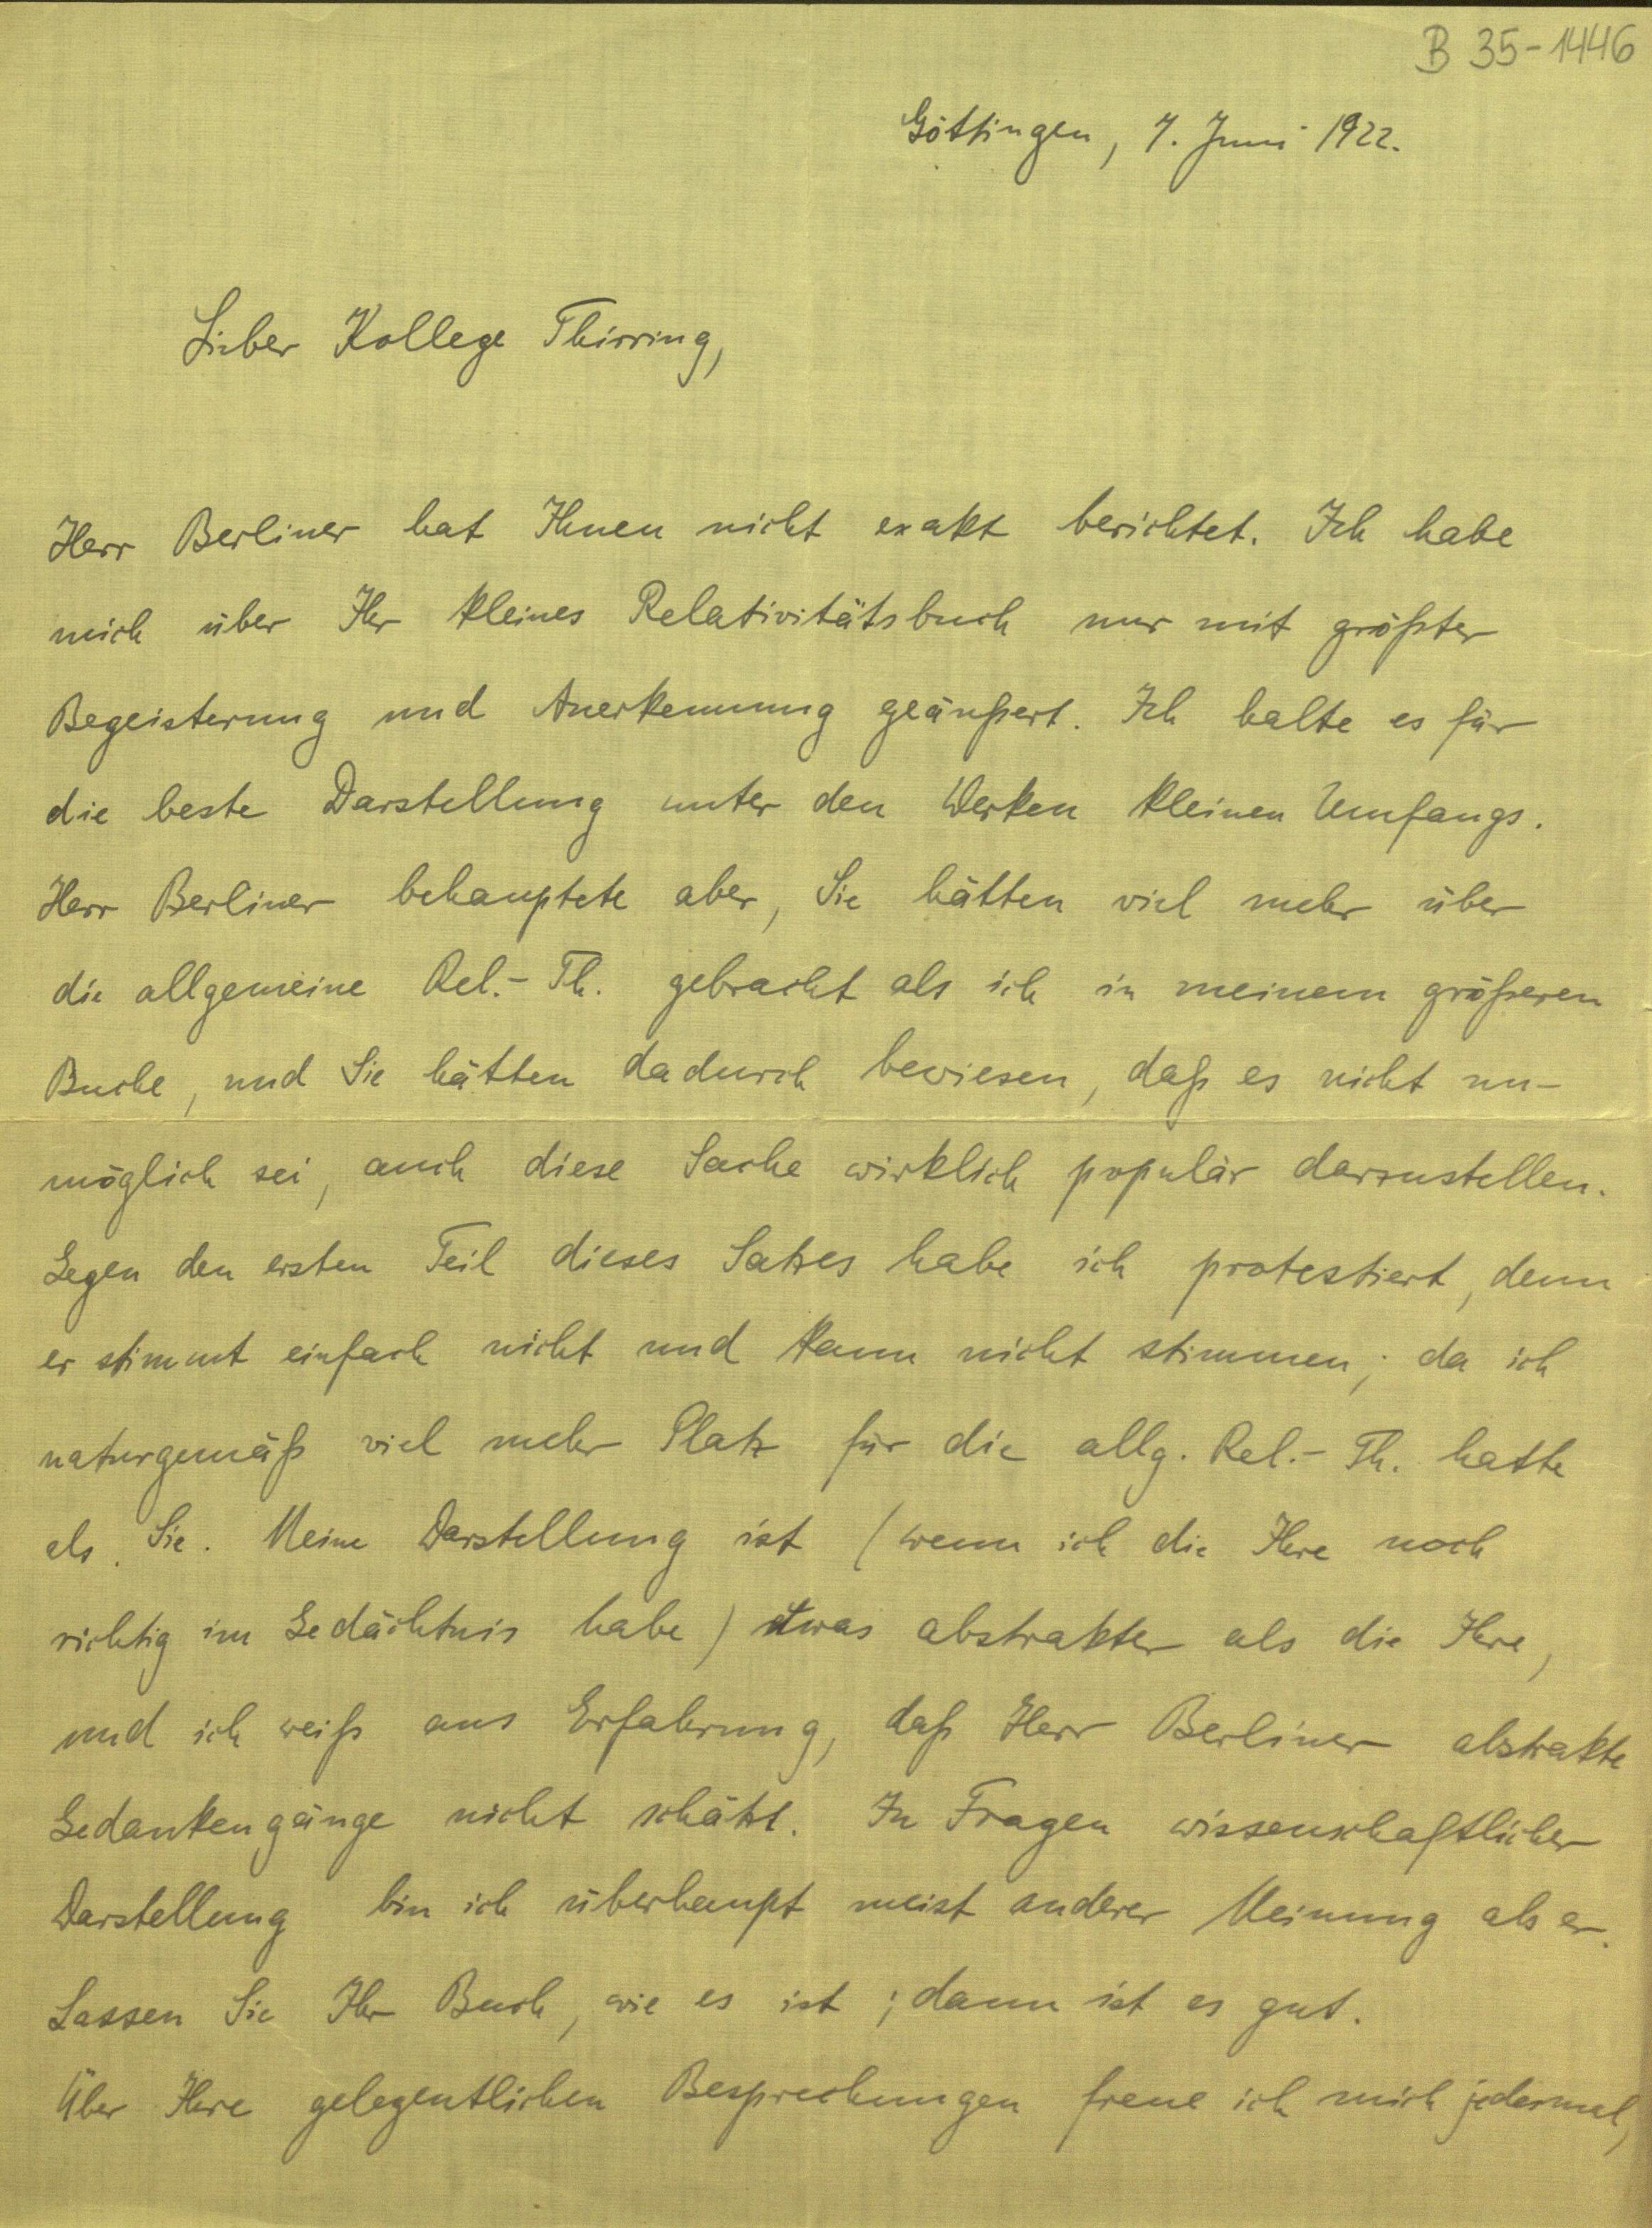 B 35-1446
Göttingen, 7. Juni 1922.
Lieber Kollege Thirring,
Herr Berliner hat Ihnen nicht exakt berichtet. Ich habe
mich über Ihr kleines Relativitätsbuch nur mit größter
Begeisterung und Anerkennung geäußert. Ich halte es für
die beste Darstellung unter den Werken kleinen Umfangs.
Herr Berliner behauptete aber, Sie hätten viel mehr über
die allgemeine Rel.-Th. gebracht als ich in meinem größeren
Buche, und Sie hätten dadurch bewiesen, daß es nicht un-
möglich sei, auch diese Sache wirklich populär darzustellen.
Gegen den ersten Teil dieses Satzes habe ich protestiert, denn
er stimmt einfach nicht und kann nicht stimmen; da ich
naturgemäß viel mehr Platz für die allg. Rel.-Th. hatte
als Sie. Meine Darstellung ist (wenn ich die Ihre noch
richtig im Gedächtnis habe) etwas abstrakter als die Ihre,
und ich weiß aus Erfahrung, daß Herr Berliner abstrakte
Gedankengänge nicht schätzt. In Fragen wissenschaftlicher
Darstellung bin ich überhaupt meist anderer Meinung als er.
Lassen Sie Ihr Buch, wie es ist; dann ist es gut.
Über Ihre gelegentlichen Besprechungen freue ich mich jedesmal,